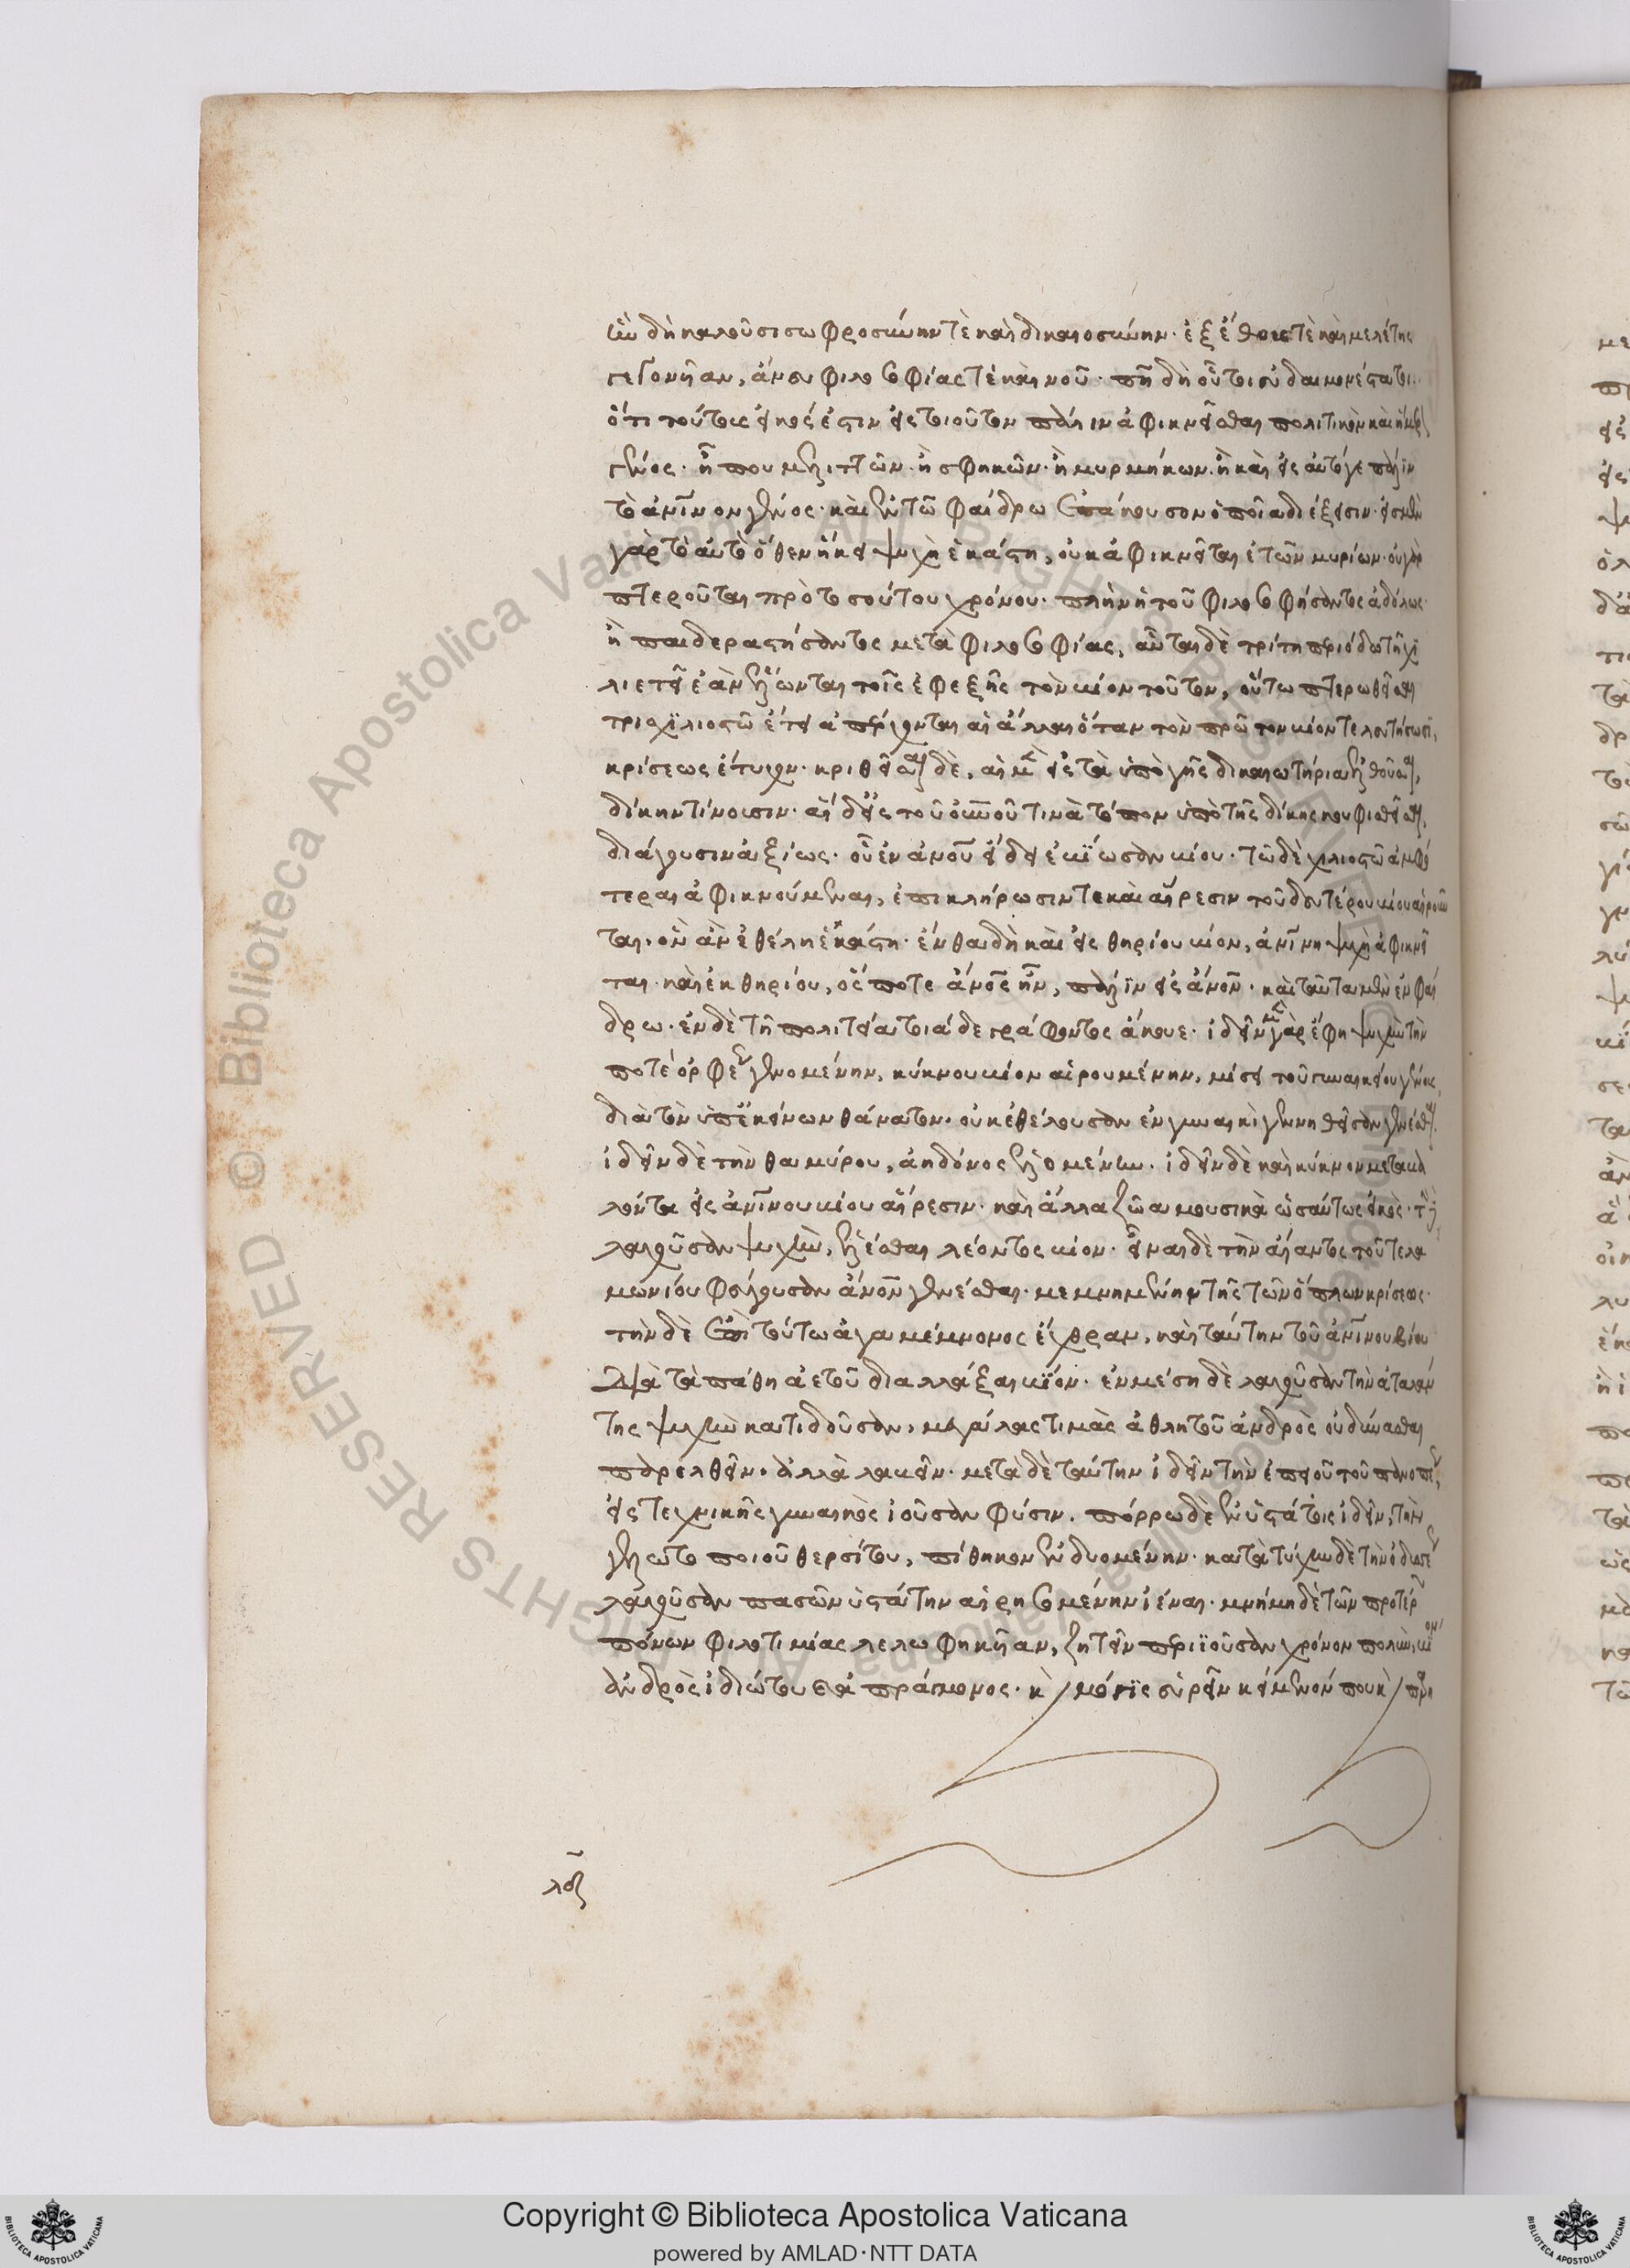 ἣν δὴ καλοῦσι σωφροσύνην τὲ καὶ δικαιοσύνην· ἐξ ἔθους τὲ καὶ μελέτης
γεγονῆαν, ἄνευ φιλοσοφίας τὲ καὶ νοῦ· πῆ δὴ οὗτοι εὐδαιμονέστατοι·
ὅτι τούτους εἰκός ἐστιν εἰς τοιοῦτον πάλιν ἀφικνεῖσθαι πολιτικὸν καὶ ἥμερ
γένος· ἤ που μελιττῶν· ἢ σφηκῶν· ἢ μυρμήκων· ἢ καὶ εἰς αὐτό γε πάλιν
τὸ ἀνῖνον γένος· καὶ ἐν τῶ φαίδρω ἐπάκουσον ὁποῖα διέξεισιν· εἰς μὲν
γὰρ τὸ αὐτὸ ὅθεν ἥκει ψυχὴ ἑκάστη, οὐκ ἀφικνεῖται ἐτῶν μυρίων· οὐ γὰρ
πτεροῦται πρὸ τοσούτου χρόνου· πλὴν ἡ τοῦ φιλοσοφήσαντος ἀδόλως·
ἢ παιδεραστήσαντος μετὰ φιλοσοφίας, αὗται δὲ τρίτη περιόδω τῆ χι
λιετεῖ ἐὰν ἕλωνται τοῖς ἐφεξῆς τὸν βίον τοῦτον, οὕτω πτερωθεῖσαι
τρισχιλιοστῶ ἔτει ἀπέρχονται αἱ ἄλλαι ὅταν τὸν πρῶτον βίον τελευτήσωσι,
κρίσεως ἔτυχον· κριθεῖσαι δὲ, αἱ μὲν εἰς τὰ ὑπὸ γῆς δικαιωτήρια ἐλθοῦσαι,
δίκην τίνουσιν· αἱ δ' εἰς τοῦ οὐνοῦ τινὰ τόπον ὑπὸ τῆς δίκης κουφισθεῖσαι,
διάγουσιν ἀξίως· οὗ ἐν ἀνοῦ εἴδει ἐβίωσαν βίου· τῶ δὲ χιλιοστῶ ἀμφό
τεραι ἀφικνούμεναι, ἐπὶ κλήρωσίν τε καὶ αἵρεσιν τοῦ δευτέρου βίου αἱροῦν
ται· ὃν ἂν ἐθέλη ἑκάστη· ἔνθα δὴ καὶ εἰς θηρίου βίον, ἀνίνη ψυχὴ ἀφικνεῖ
ται· καὶ ἐκ θηρίου, ὅς ποτε ἄνος ἦν, πάλιν εἰς ἄνον· καὶ ταῦτα μὲν ἐν φαί
δρω· ἐν δὲ τῆ πολιτεία τοιάδε γράφοντος ἄκουε· ἰδεῖν μὲν γὰρ ἔφη ψυχὴν τὴν
ποτὲ ὀρφέως γενομένην, κύκνου βίον αἱρουμένην, μίσει τοῦ γυναικείου γένους
διὰ τὸν ὑπ' ἐκείνων θάνατον· οὐκ ἐθέλουσαν ἐν γυναικὶ γεννηθεῖσαν γενέσθαι·
ἰδεῖν δὲ τὴν θαμύρου, ἀηδόνος ἑλομένην· ἰδεῖν δὲ καὶ κύκνον μεταβάλ
λοντα εἰς ἀνίνου βίου αἵρεσιν· καὶ ἄλλα ζῶα μουσικὰ ὡσαύτως εἰκὸς· τὴν
λαχοῦσαν ψυχὴν, ἑλέσθαι λέοντος βίον· εἶναι δὲ τὴν αἴαντος τοῦ τελα
μωνίου φεύγουσαν ἄνον γενέσθαι· μεμνημένην τῆς τῶν ὅπλων κρίσεως·
τὴν δὲ ἐπὶ τούτω ἀγαμέμνονος ἔχθραν, καὶ ταύτην τοῦ ἀνίνου βίου
διὰ τὰ πάθη ἀετοῦ διαλλάξαι βίον· ἐν μέση δὲ λαχοῦσαν τὴν ἀταλάν
της ψυχὴν κατιδοῦσαν, μεγάλας τιμὰς ἀθλητοῦ ἀνδρὸς οὐ δύνασθαι
παρελθεῖν· ἀλλὰ λαβεῖν· μετὰ δὲ ταύτην ἰδεῖν τὴν ἐπειοῦ τοῦ πανοπέως,
εἰς τεχνικῆς γυναικὸς ἰοῦσαν φύσιν· πόρρω δὲ ἐν ὑστάτοις ἰδεῖν, τὴν
γελωτοποιοῦ θερσίτου, πίθηκον ἐνδυομένην· κατὰ τύχην δὲ τὴν ὀδυσσέως
λαχοῦσαν πασῶν ὑστάτην αἱρησομένην ἰέναι· μνήμη δὲ τῶν προτέρων
πόνων φιλοτιμίας λελωφηκῆαν, ζητεῖν περιϊοῦσαν χρόνον πολὺν, βίον
ἀνδρὸς ἰδιώτου ἀπράγμονος· κὴ μόγις εὑρεῖν κείμενόν που κὴ παρη